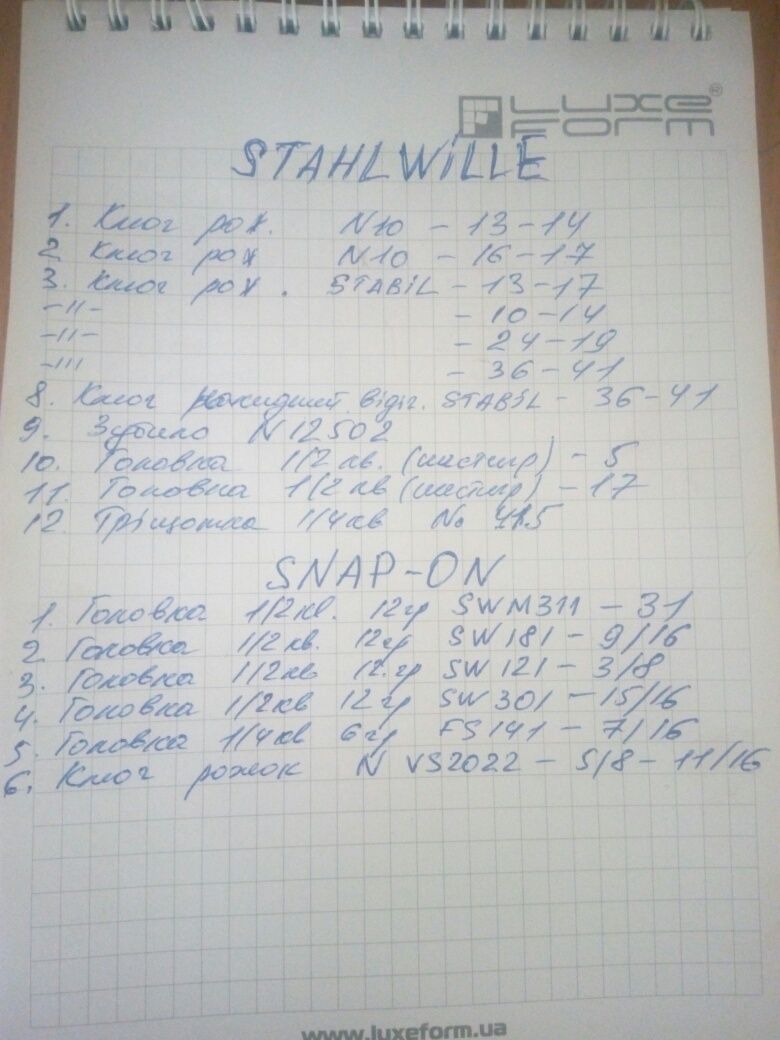 LUXE
FORM®
STAHLWiLLE
1. Ключ рож. N10 - 13-14
2 Ключ рож N10 - 16-17
3. Ключ рож. STABiL - 13-17
-11- - 10-14
-11- - 24-19
-111 - 36-41
8. Ключ накидний відіг. STABiL - 36-41
9. Зубило N12502
10. Головка 1/2 кв. (шестигр) - 5
11. Головка 1/2 кв (шестигр) - 17
12 Тріщотка 1/4 кв No 415
SNAP-ON
1. Головка 1/2 кв. 12гр SWM311 - 31
2 Головка 1/2 кв. 12гр SW181 - 9/16
3. Головка 1/2 кв 12.гр SW121 - 3/8
4. Головка 1/2 кв 12гр SW301 - 15/16
5. Головка 1/4 кв 6гр FS141 - 7/16
6. Ключ рожок N VS2022 - 5/8 - 11/16
www.luxeform.ua